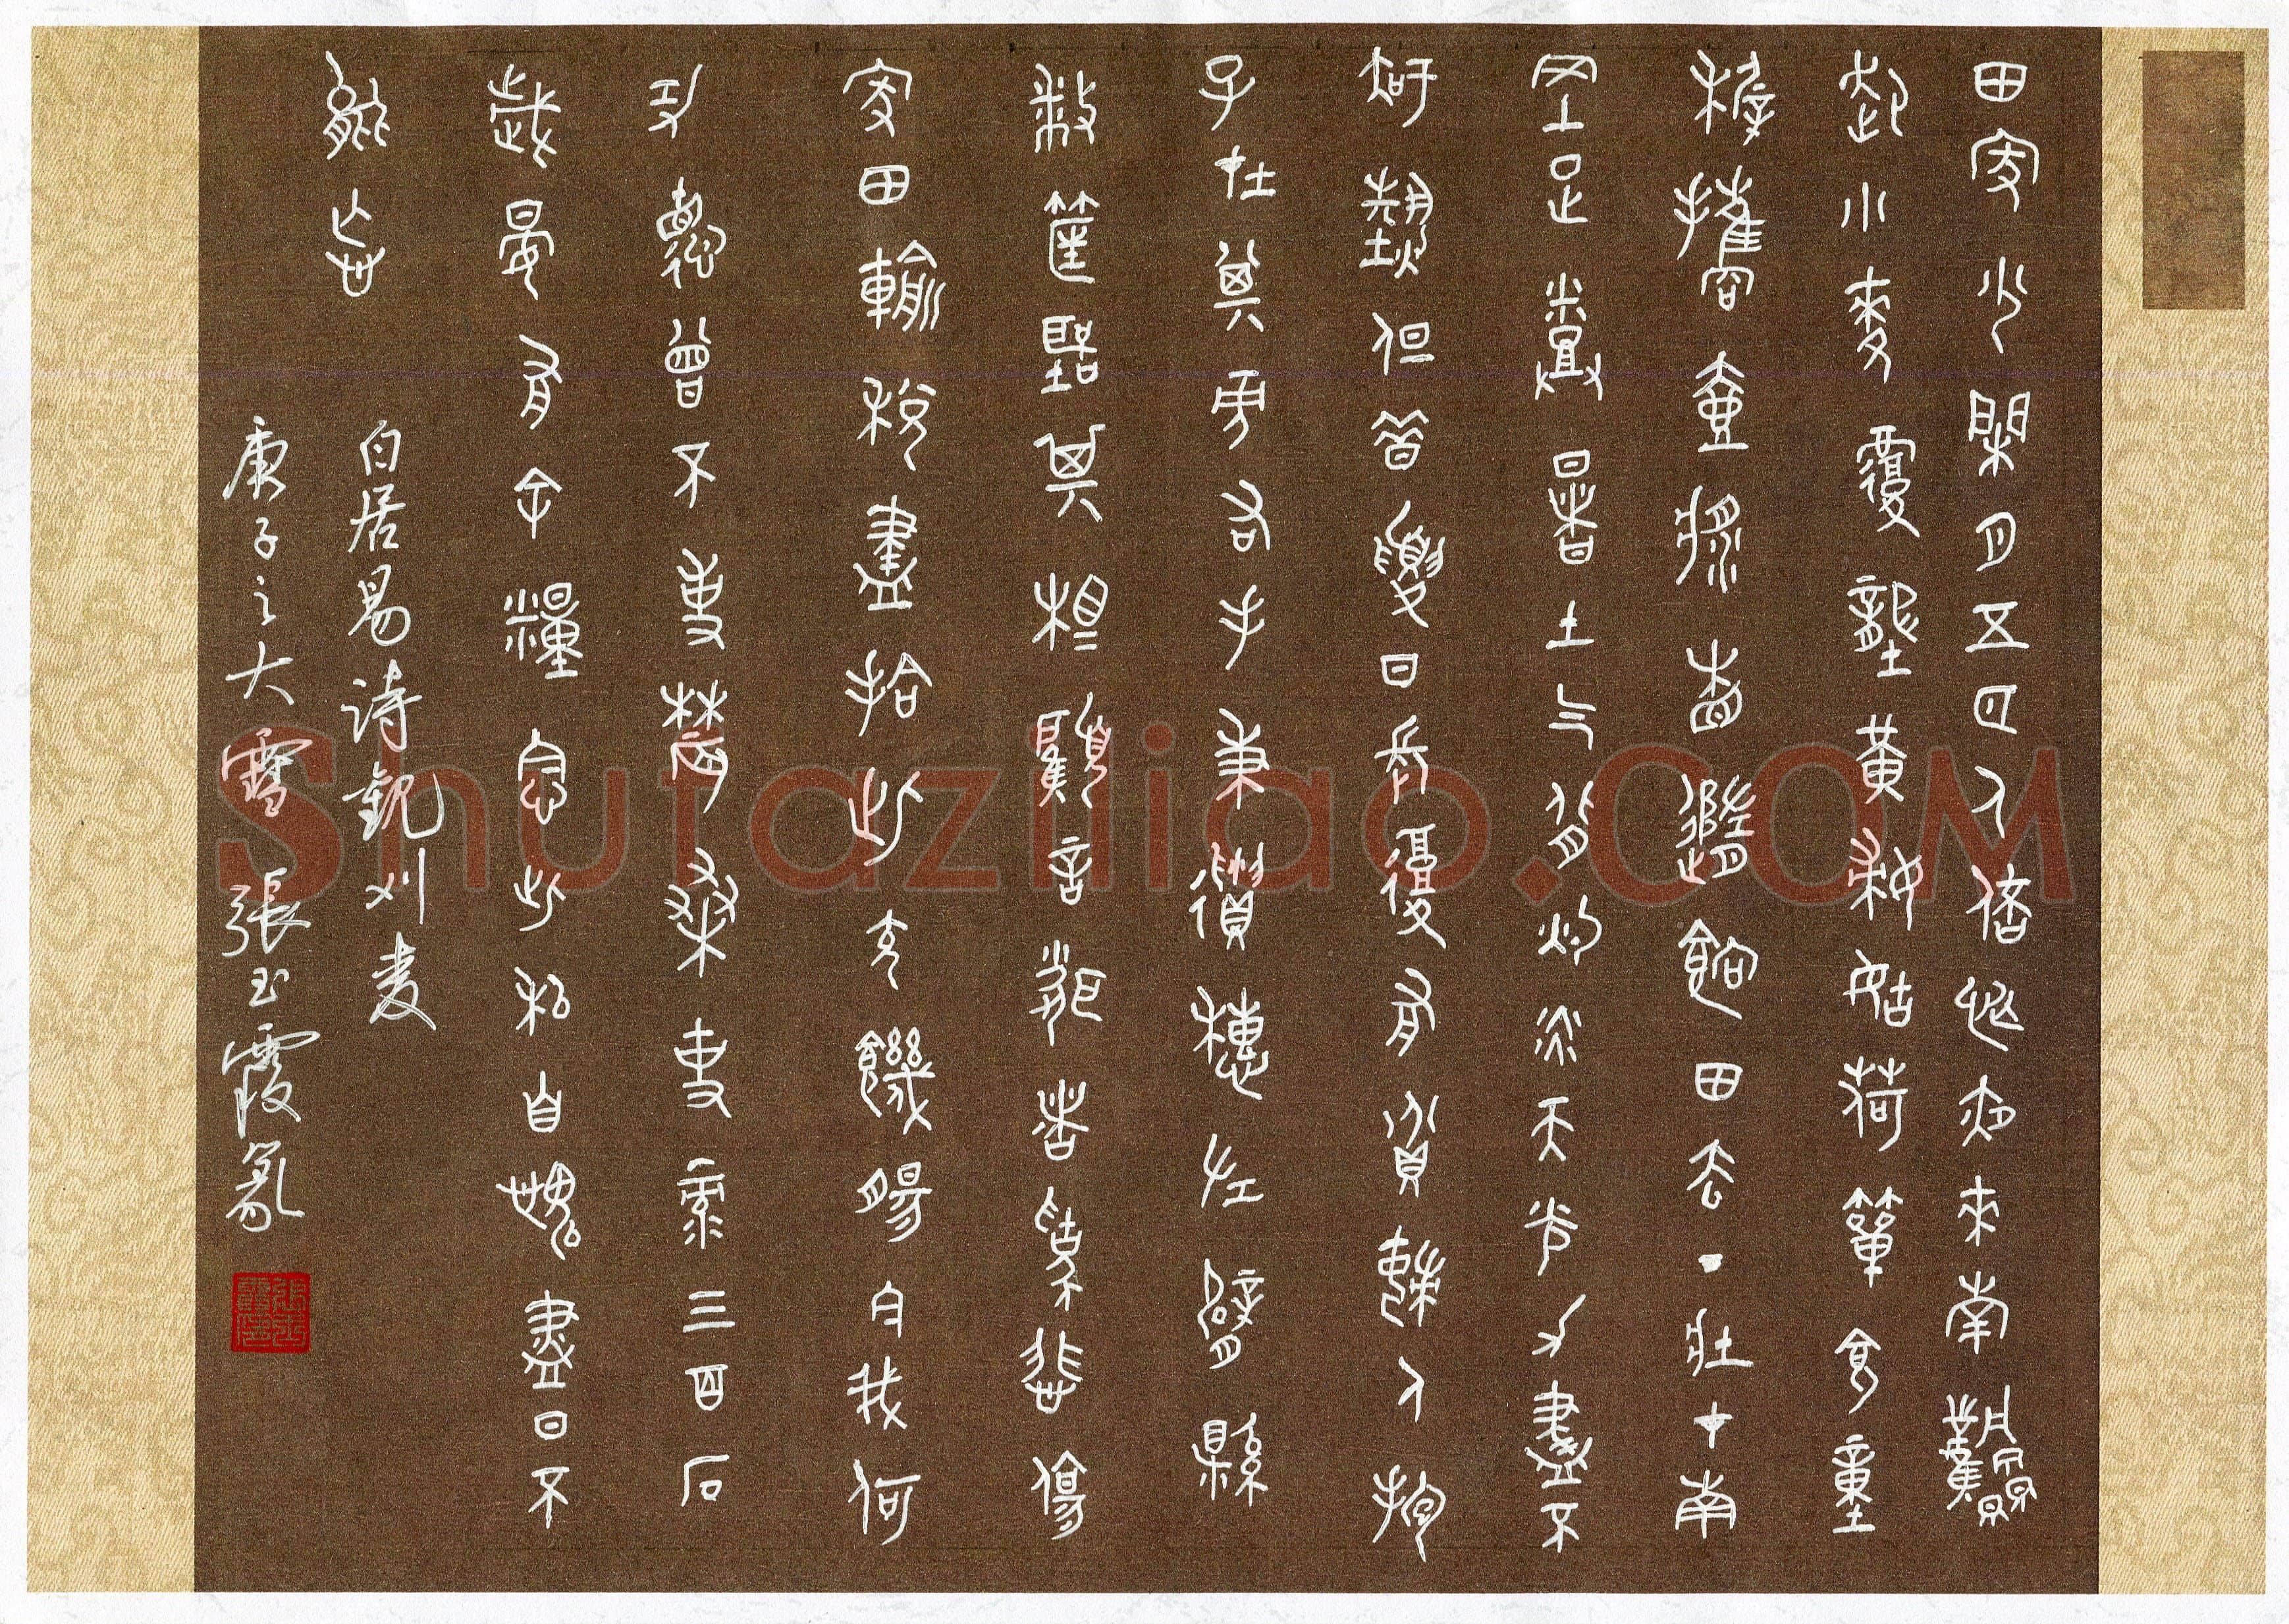 田家少閑月五月人倍忙夜來南風
起小麥覆壟黃婦姑荷簞食童
稚攜壺漿相隨餉田去丁壯在南
岡足蒸暑土氣背灼炎天光力盡不
知熱但惜夏日長復有貧婦人抱
子在其旁右手秉遺穗左臂懸
敝筐聽其相顧言聞者為悲傷
家田輸稅盡拾此充饑腸今我何
功德曾不事農桑吏祿三百石
歲晏有余糧念此私自愧盡日不
能忘
白居易詩觀刈麥
庚子之大雪 張玉霞篆
Shufaziliao.COM